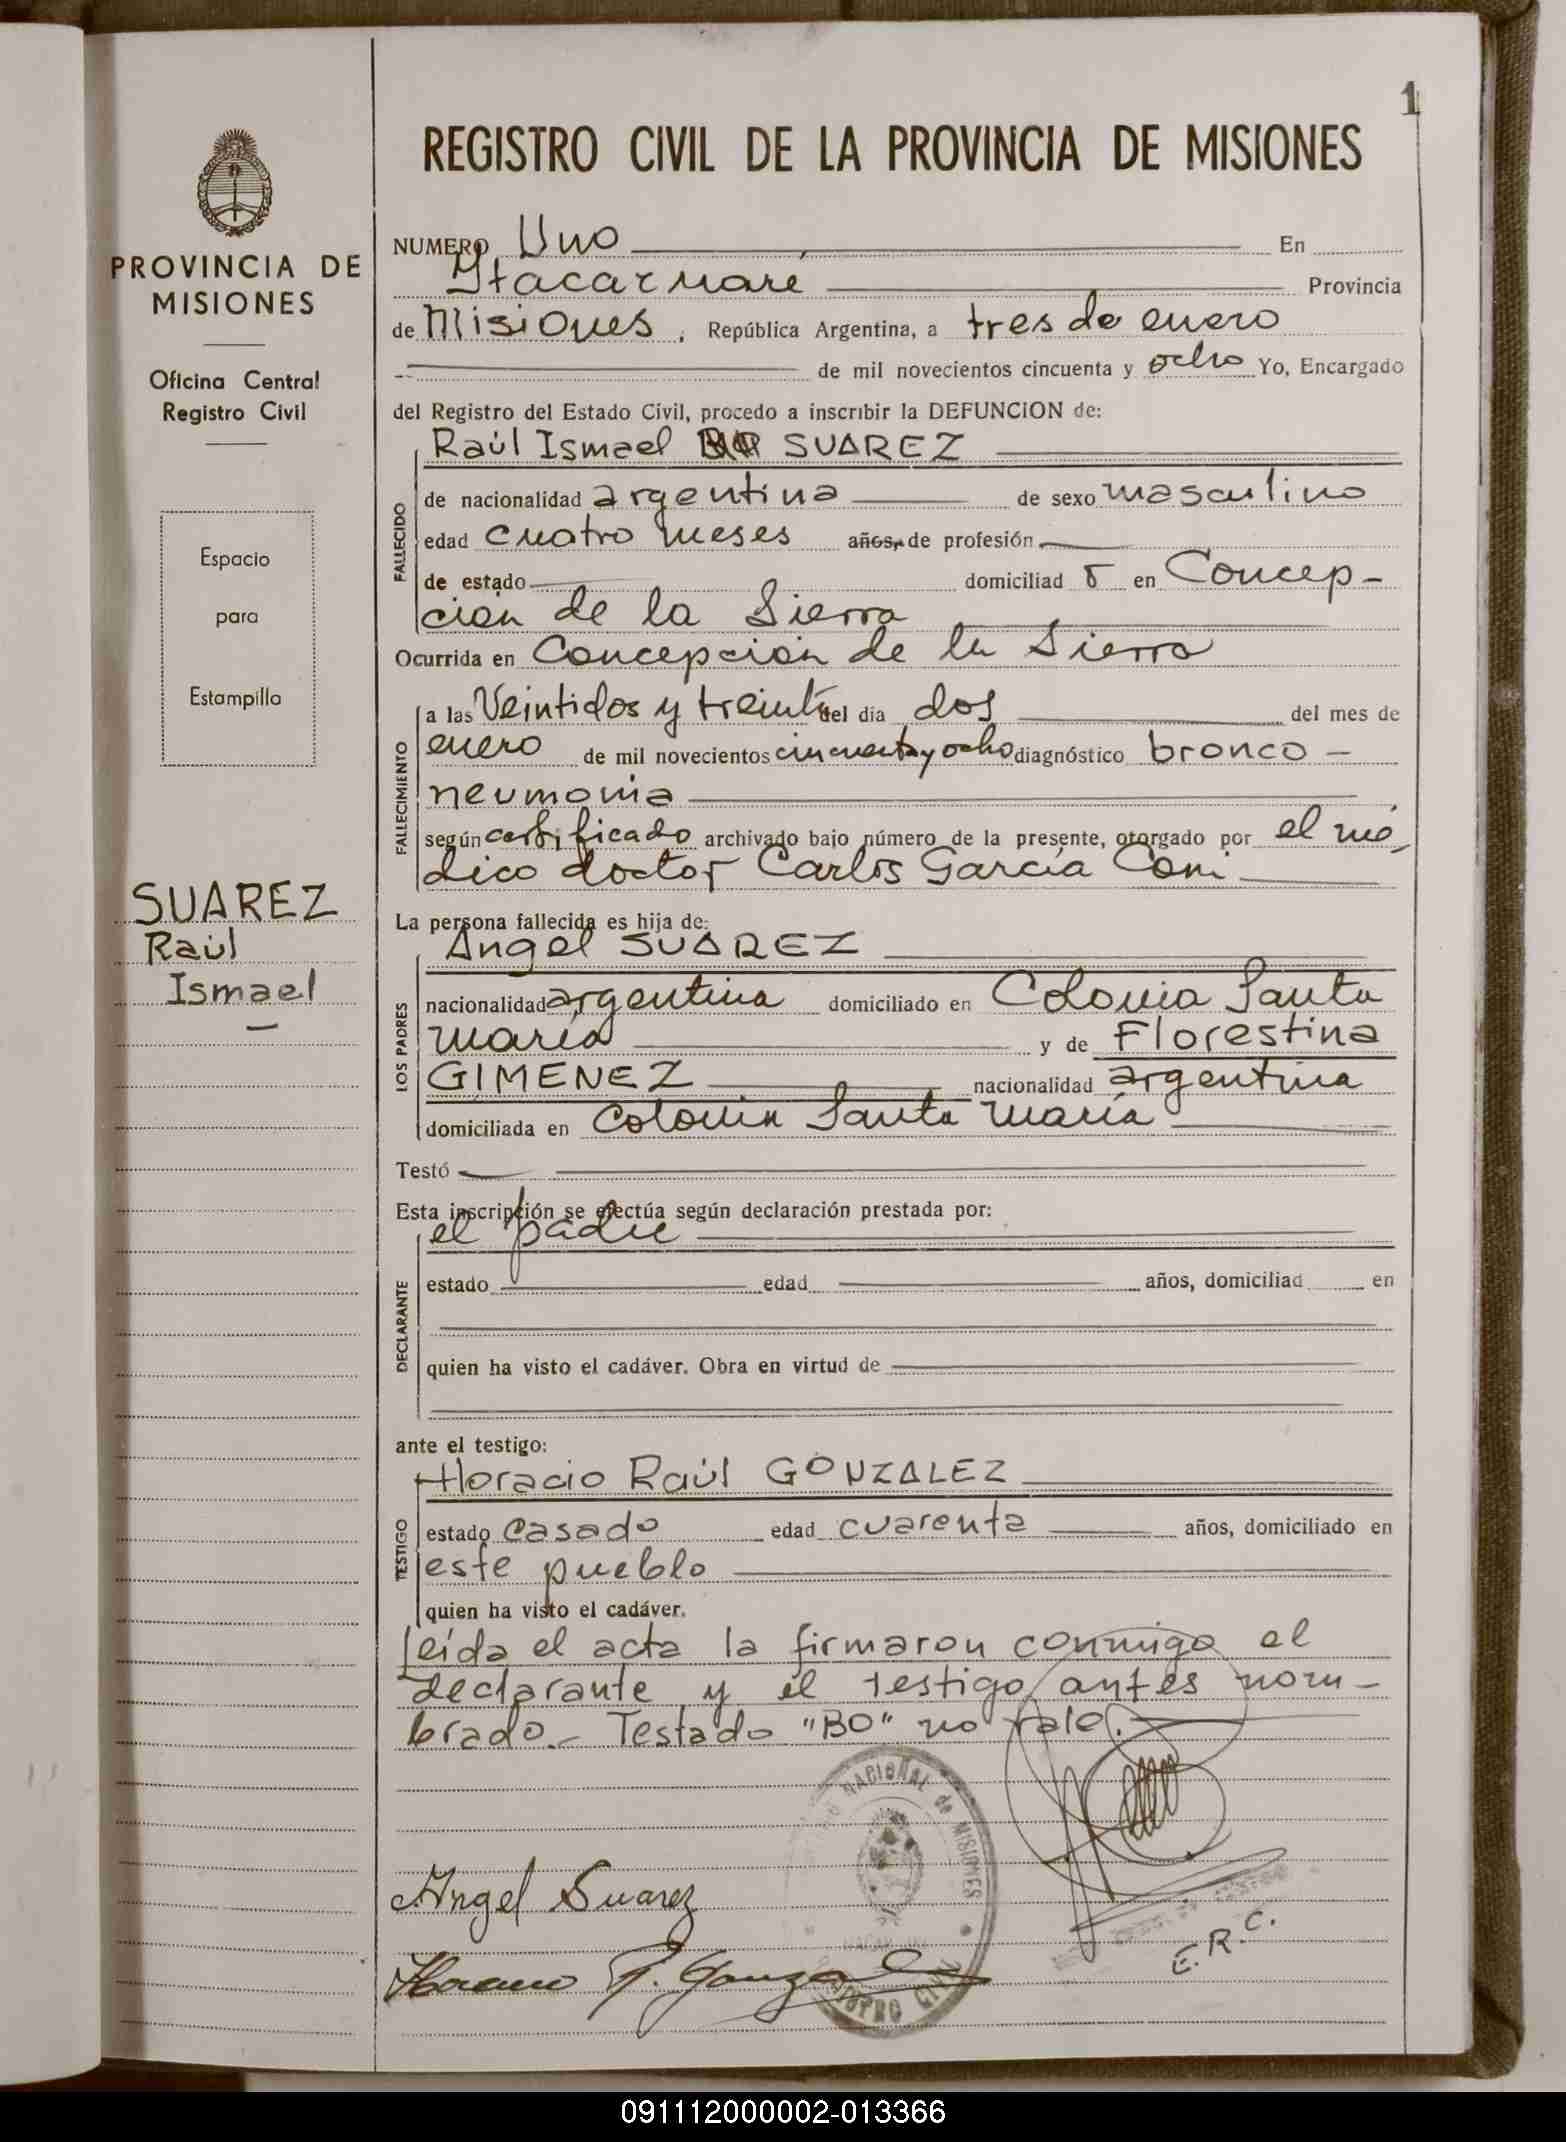 1
REGISTRO CIVIL DE LA PROVINCIA DE MISIONES
PROVINCIA DE
MISIONES
Oficina Central
Registro Civil
Espacio
para
Estampilla
SUAREZ
Raúl
Ismael
NUMERO Uno En
Itacaruaré Provincia
de Misiones, República Argentina, a tres de enero
de mil novecientos cincuenta y ocho Yo, Encargado
del Registro del Estado Civil, procedo a inscribir la DEFUNCION de:
Raúl Ismael BO SUAREZ
FALLECIDO
de nacionalidad argentina de sexo masculino
edad cuatro meses años, de profesión
de estado domiciliad o en Concep-
ción de la Sierra
Ocurrida en Concepción de la Sierra
FALLECIMIENTO
a las Veintidos y treinta del día dos del mes de
enero de mil novecientos cincuenta y ocho diagnóstico bronco-
neumonia
según certificado archivado bajo número de la presente, otorgado por el mé-
dico doctor Carlos García Coni
La persona fallecida es hija de:
LOS PADRES
Angel SUAREZ
nacionalidad argentina domiciliado en Colonia Santa
María y de Florestina
GIMENEZ nacionalidad argentina
domiciliada en Colonia Santa María
Testó
Esta inscripción se efectúa según declaración prestada por:
DECLARANTE
el padre
estado edad años, domiciliad en
quien ha visto el cadáver. Obra en virtud de
ante el testigo:
TESTIGO
Horacio Raúl GONZALEZ
estado casado edad cuarenta años, domiciliado en
este pueblo
quien ha visto el cadáver.
Leída el acta la firmaron conmigo el
declarante y el testigo antes nom-
brado.- Testado "BO" no vale.
NACIONAL de MISIONES
REGISTRO CIVIL
Angel Suarez
Horacio R. Gonzalez
E.R.C.
091112000002-013366